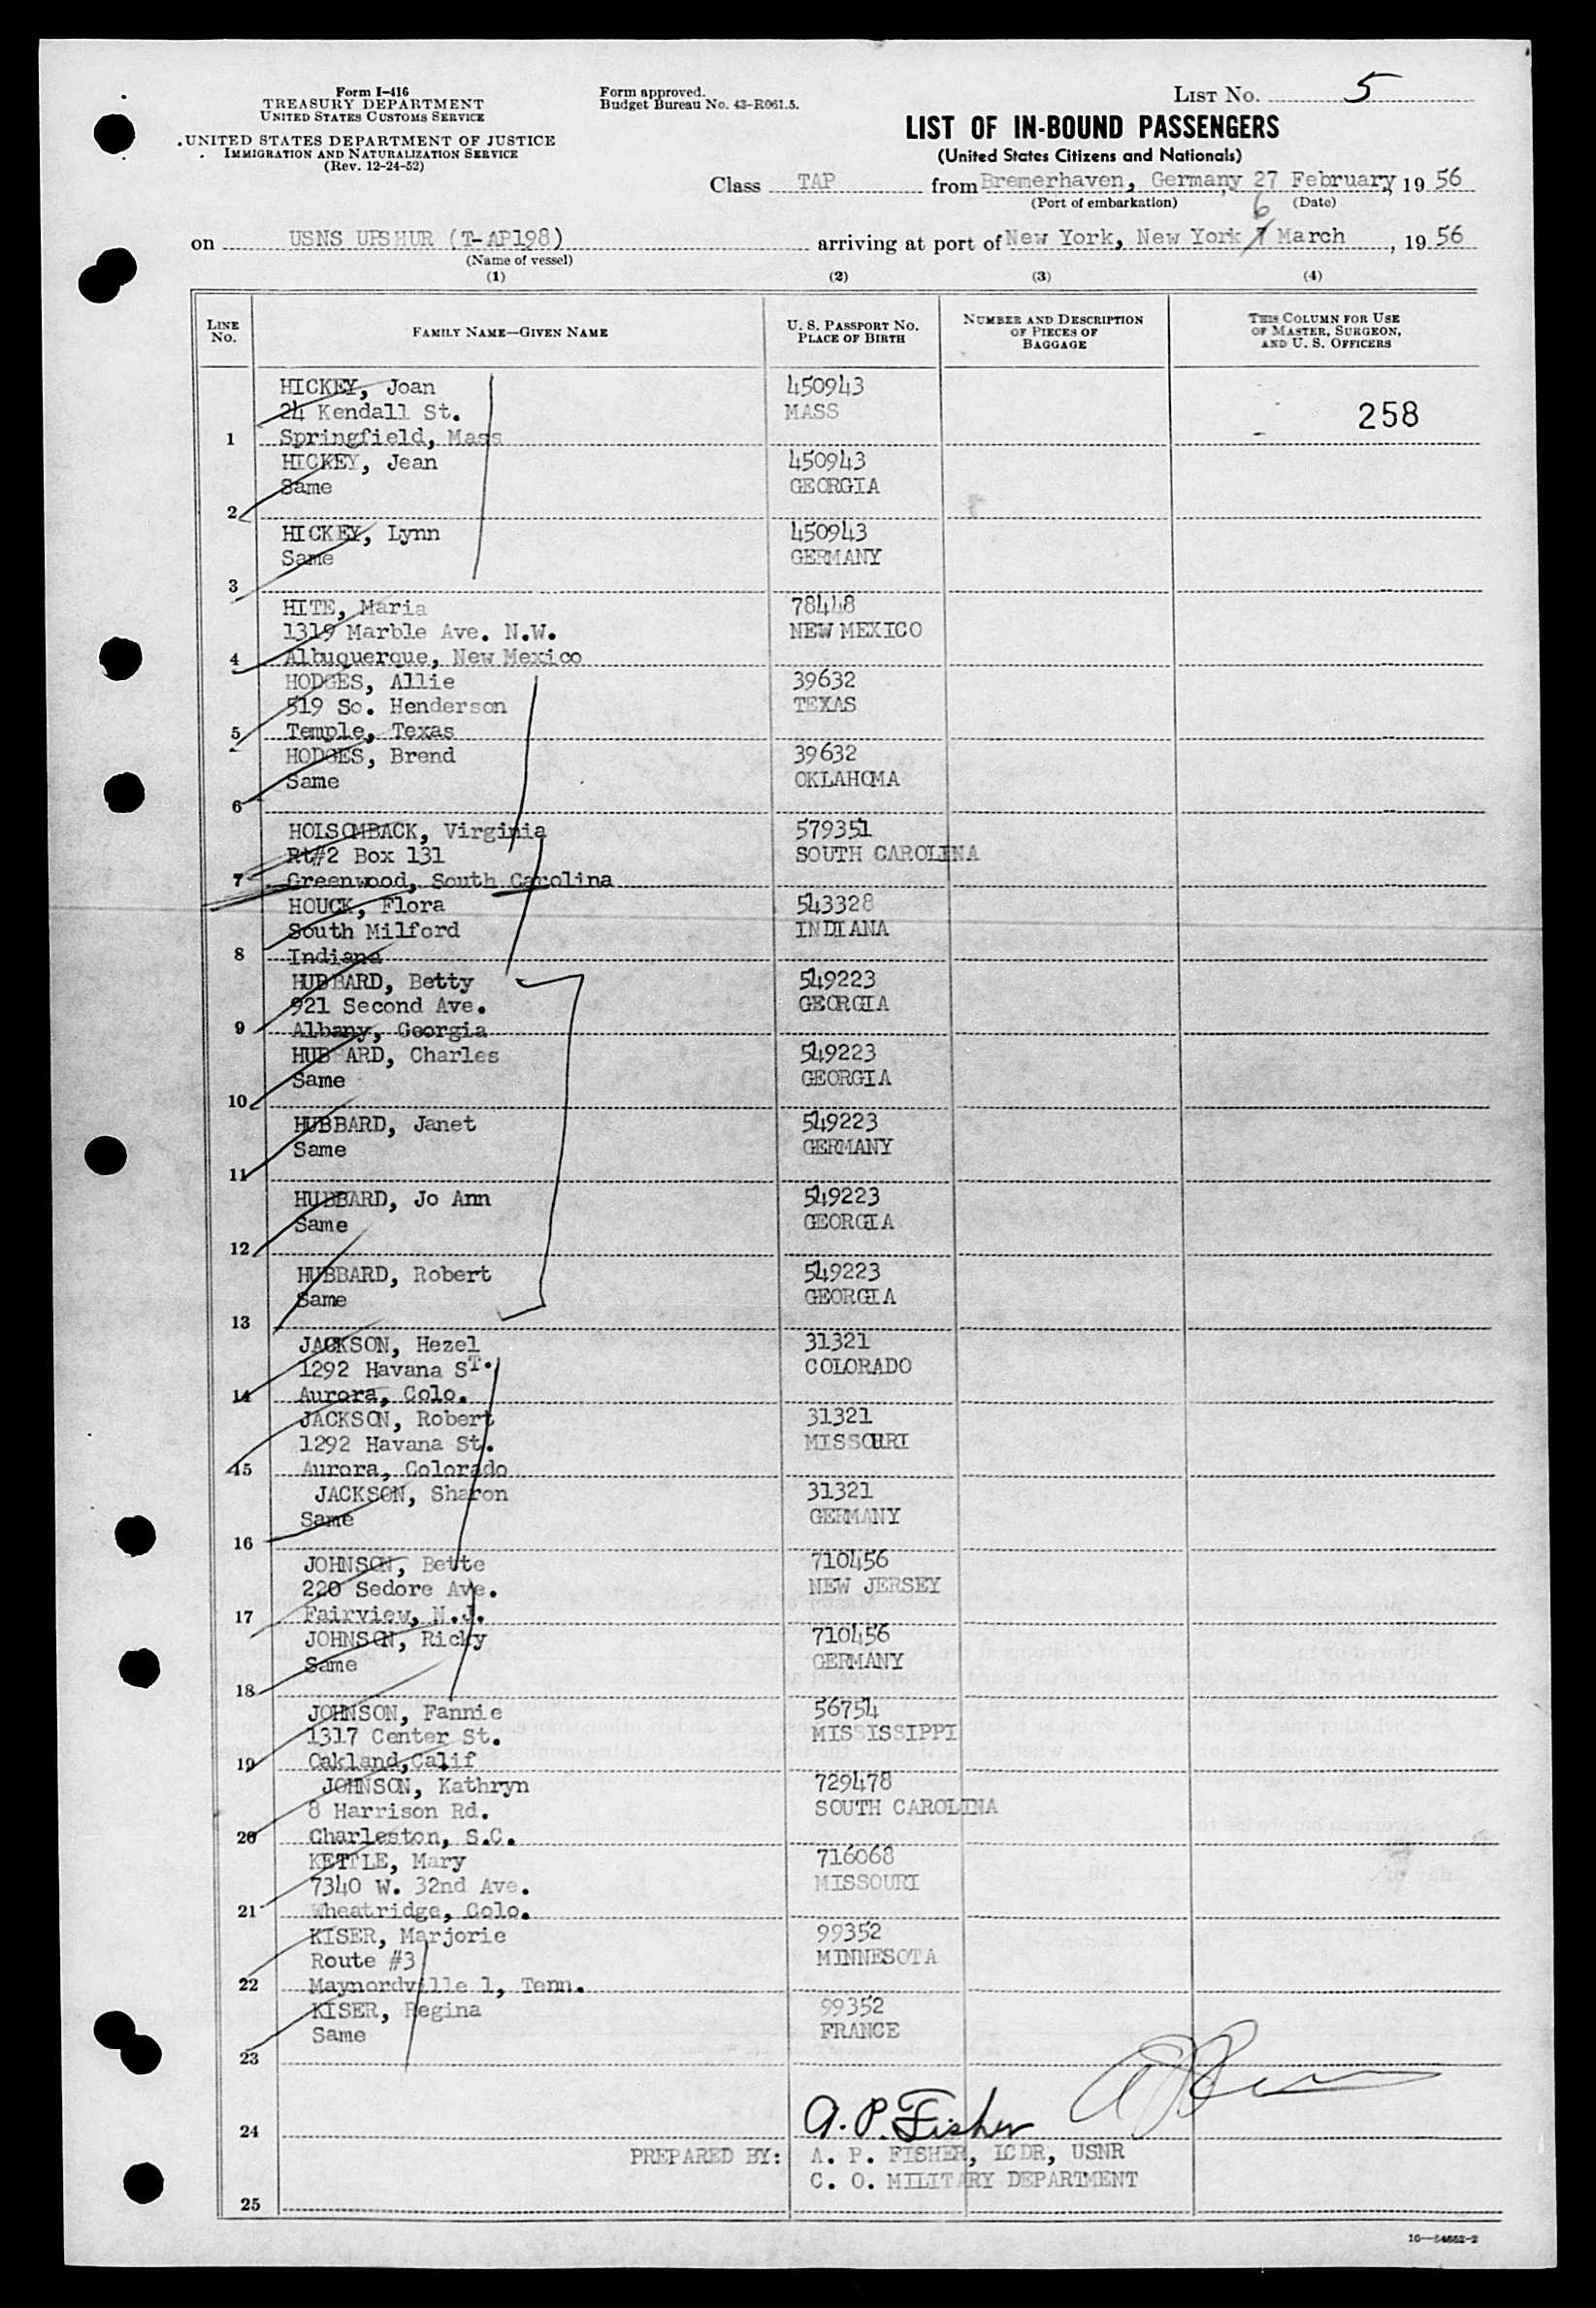 Form I-416
TREASURY DEPARTMENT
UNITED STATES CUSTOMS SERVICE
UNITED STATES DEPARTMENT OF JUSTICE
IMMIGRATION AND NATURALIZATION SERVICE
(Rev. 12-24-52)
Form approved.
Budget Bureau No. 43-R061.5.
LIST No. 5
LIST OF IN-BOUND PASSENGERS
(United States Citizens and Nationals)
Class TAP from Bremerhaven, Germany, 27 February, 1956
(Port of embarkation) (Date)
6
on USNS UPSHUR (T-AP198) arriving at port of New York, New York 7 March, 1956
(Name of vessel)
(1) (2) (3) (4)
LINE No. FAMILY NAME—GIVEN NAME U. S. PASSPORT No. PLACE OF BIRTH NUMBER AND DESCRIPTION OF PIECES OF BAGGAGE THIS COLUMN FOR USE OF MASTER, SURGEON, AND U. S. OFFICERS
HICKEY, Joan 450943
24 Kendall St. MASS 258
1 Springfield, Mass
HICKEY, Jean 450943
Same GEORGIA
2
HICKEY, Lynn 450943
Same GERMANY
3
HITE, Maria 78448
1319 Marble Ave. N.W. NEW MEXICO
4 Albuquerque, New Mexico
HODGES, Allie 39632
519 So. Henderson TEXAS
5 Temple, Texas
HODGES, Brend 39632
Same OKLAHOMA
6
HOLSOMBACK, Virginia 579351
Rt#2 Box 131 SOUTH CAROLINA
7 Greenwood, South Carolina
HOUCK, Flora 543328
South Milford INDIANA
8 Indiana
HUBBARD, Betty 549223
921 Second Ave. GEORGIA
9 Albany, Georgia
HUBBARD, Charles 549223
Same GEORGIA
10
HUBBARD, Janet 549223
Same GERMANY
11
HUBBARD, Jo Ann 549223
Same GEORGIA
12
HUBBARD, Robert 549223
Same GEORGIA
13
JACKSON, Hezel 31321
1292 Havana ST. COLORADO
14 Aurora, Colo.
JACKSON, Robert 31321
1292 Havana St. MISSOURI
15 Aurora, Colorado
JACKSON, Sharon 31321
Same GERMANY
16
JOHNSON, Bette 710456
220 Sedore Ave. NEW JERSEY
17 Fairview, N.J.
JOHNSON, Ricky 710456
Same GERMANY
18
JOHNSON, Fannie 56754
1317 Center St. MISSISSIPPI
19 Oakland, Calif
JOHNSON, Kathryn 729478
8 Harrison Rd. SOUTH CAROLINA
20 Charleston, S.C.
KETTLE, Mary 716068
7340 W. 32nd Ave. MISSOURI
21 Wheatridge, Colo.
KISER, Marjorie 99352
Route #3 MINNESOTA
22 Maynordville 1, Tenn.
KISER, Regina 99352
Same FRANCE
23
A. P. Fisher
24
PREPARED BY: A. P. FISHER, LCDR, USNR
C. O. MILITARY DEPARTMENT
25
16—54652-2